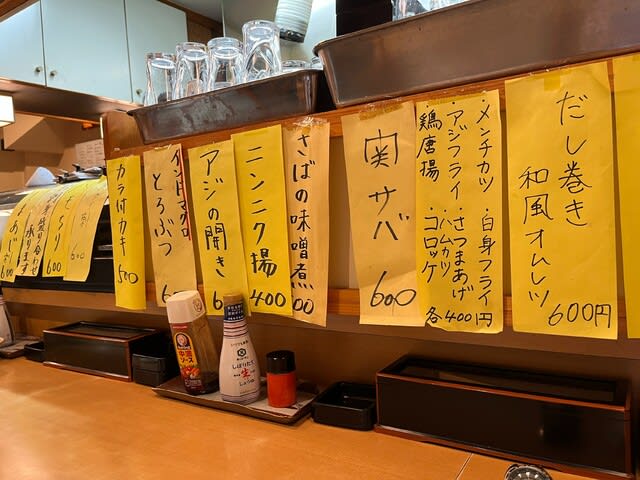 だし巻き
和風オムレツ
600円
・メンチカツ
・アジフライ
鶏唐揚
・白身フライ
・さつまあげ
・ハムカツ
・コロッケ
各400円
サバ
600
さばの味噌煮
00
ニンニク揚
400
アジの開き
6
インドマグロ
とろぶつ
6
カラ付カキ
500
600
ちり
600
盛り合わせ
承ります
600
中濃
ソース
しぼりたて
生
しょうゆ